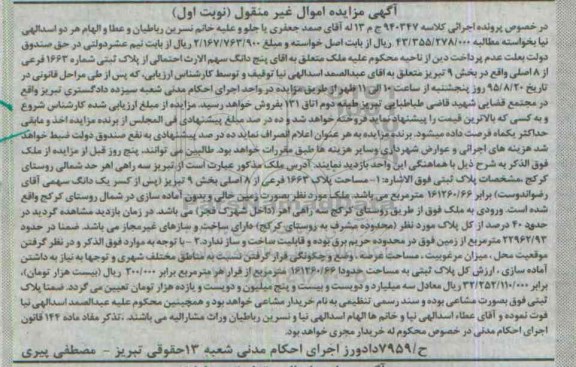 آگهی مزایده اموال غیر منقول (نوبت اول)
در خصوص پرونده اجرائی کلاسه ۹۴۰۳۴۷ ج م ۱۳ له آقای صمد جعفری یا جلو و علیه خانم نسرین رباطیان و عطا و الهام هر دو اسدالهی
نیا بخواسته مطالبه ۴۳/۳۵۵/۲۷۸/۰۰۰ ریال از بابت اصل خواسته و مبلغ ۲/۱۶۷/۷۶۳/۹۰۰ ریال از بابت نیم عشردولتی در حق صندوق
دولت بعلت عدم پرداخت دین از ناحیه محکوم علیه ملک متعلق به آقای پنج دانگ سهم الارث احتمالی از پلاک ثبتی شماره ۱۶۶۳ فرعی
از ۸ اصلی واقع در بخش ۹ تبریز متعلق به آقای عبدالصمد اسدالهی نیا توقیف و توسط کارشناس ارزیابی، که پس از طی مراحل قانونی در
تاریخ ۹۵/۸/۲۰ روز پنجشنبه از ساعت ۱۰ الی ۱۱ ظهر از طریق مزایده در واحد اجرای احکام مدنی شعبه سیزده دادگستری تبریز واقع
در مجتمع قضایی شهید قاضی طباطبایی تبریز طبقه دوم اتاق ۱۳۱ بفروش خواهد رسید. مزایده از مبلغ ارزیابی شده کارشناس شروع
و به کسی که بالاترین قیمت را پیشنهاد نماید فروخته خواهد شد و ده در صد مبلغ پیشنهادی فی المجلس از برنده مزایده اخذ و مابقی
حداکثر یکماه فرصت داده میشود. برنده مزایده به هر عنوان اعلام انصراف نماید ده در صد پیشنهادی به نفع صندوق دولت ضبط خواهد
شد هزینه های اجرائی و عوارض شهرداری وسایر هزینه ها طبق مقررات خواهد بود. طالبین می توانند، پنج روز قبل از مزایده از ملک
فوق الذکر به شرح ذیل با هماهنگی این واحد بازدید نمایند. آدرس ملک مذکور عبارت است از تبریز سه راهی اهر حد شمالی روستای
کرکج ،مشخصات پلاک ثبتی فوق الاشاره: ۱- مساحت پلاک ۱۶۶۳ فرعی از ۸ اصلی بخش ۹ تبریز (پس از کسر یک دانگ سهمی آقای
رضوادوست) برابر ۱۶۱۲۶۰/۶۶ مترمربع می باشد. ملک مورد نظر بصورت زمین خالی وبدون آماده سازی در شمال روستای کرکج واقع
شده است. ورودی به ملک فوق از طریق روستای کرکج سه راهی اهر (داخل شهرک فجر) می باشد. در زمان بازدید مشاهده گردید در
حدود ۴۰ درصد از کل پلاک مورد نظر (محدوده مشرف به روستای کرکج) دارای ساخت و سازهای غیرمجاز می باشد. ضمنا در حدود
۲۲۹۶۲/۹۳ مترمربع از زمین فوق در محدوده حریم برق بوده و قابلیت ساخت و ساز ندارد.۲- با توجه به موارد فوق الذکر و در نظر گرفتن
موقعیت محل ، میزان مرغوبیت ، مساحت عرصه، وضع و چگونگی قرار گرفتن نسبت به مناطق مختلف شهری و توجها به نیاز به داشتن
آماده سازی ، ارزش کل پلاک ثبتی به مساحت حدودا ۱۶۱۲۶۰/۶۶ مترمربع از قرار هر مترمربع برابر ۲۰۰/۰۰۰ ریال (بیست هزار تومان)،
برابر ۳۲/۲۵۲/۱۱۰/۰۰۰ ریال معادل سه میلیارد و دویست و بیست و پنج میلیون و دویست و یازده هزار تومان تعیین می گردد. ضمنا پلاک
ثبتی فوق بصورت مشاعی بوده و سند رسمی تنظیمی به نام خریدار مشاعی خواهد بود و همچنین محکوم علیه عبدالصمد اسدالهی نیا
فوت نموده و آقای عطاء اسدالهی نیا و خانم ها الهام اسدالهی نیا و نسرین رباطیان وراث مشارالیه می باشند ، تذکر مفاد ماده ۱۴۴ قانون
اجرای احکام مدنی در خصوص محکوم له خریدار مجری خواهد بود.
ح/۷۹۵۹دادورز اجرای احکام مدنی شعبه ۱۳حقوقی تبریز – مصطفی پیری